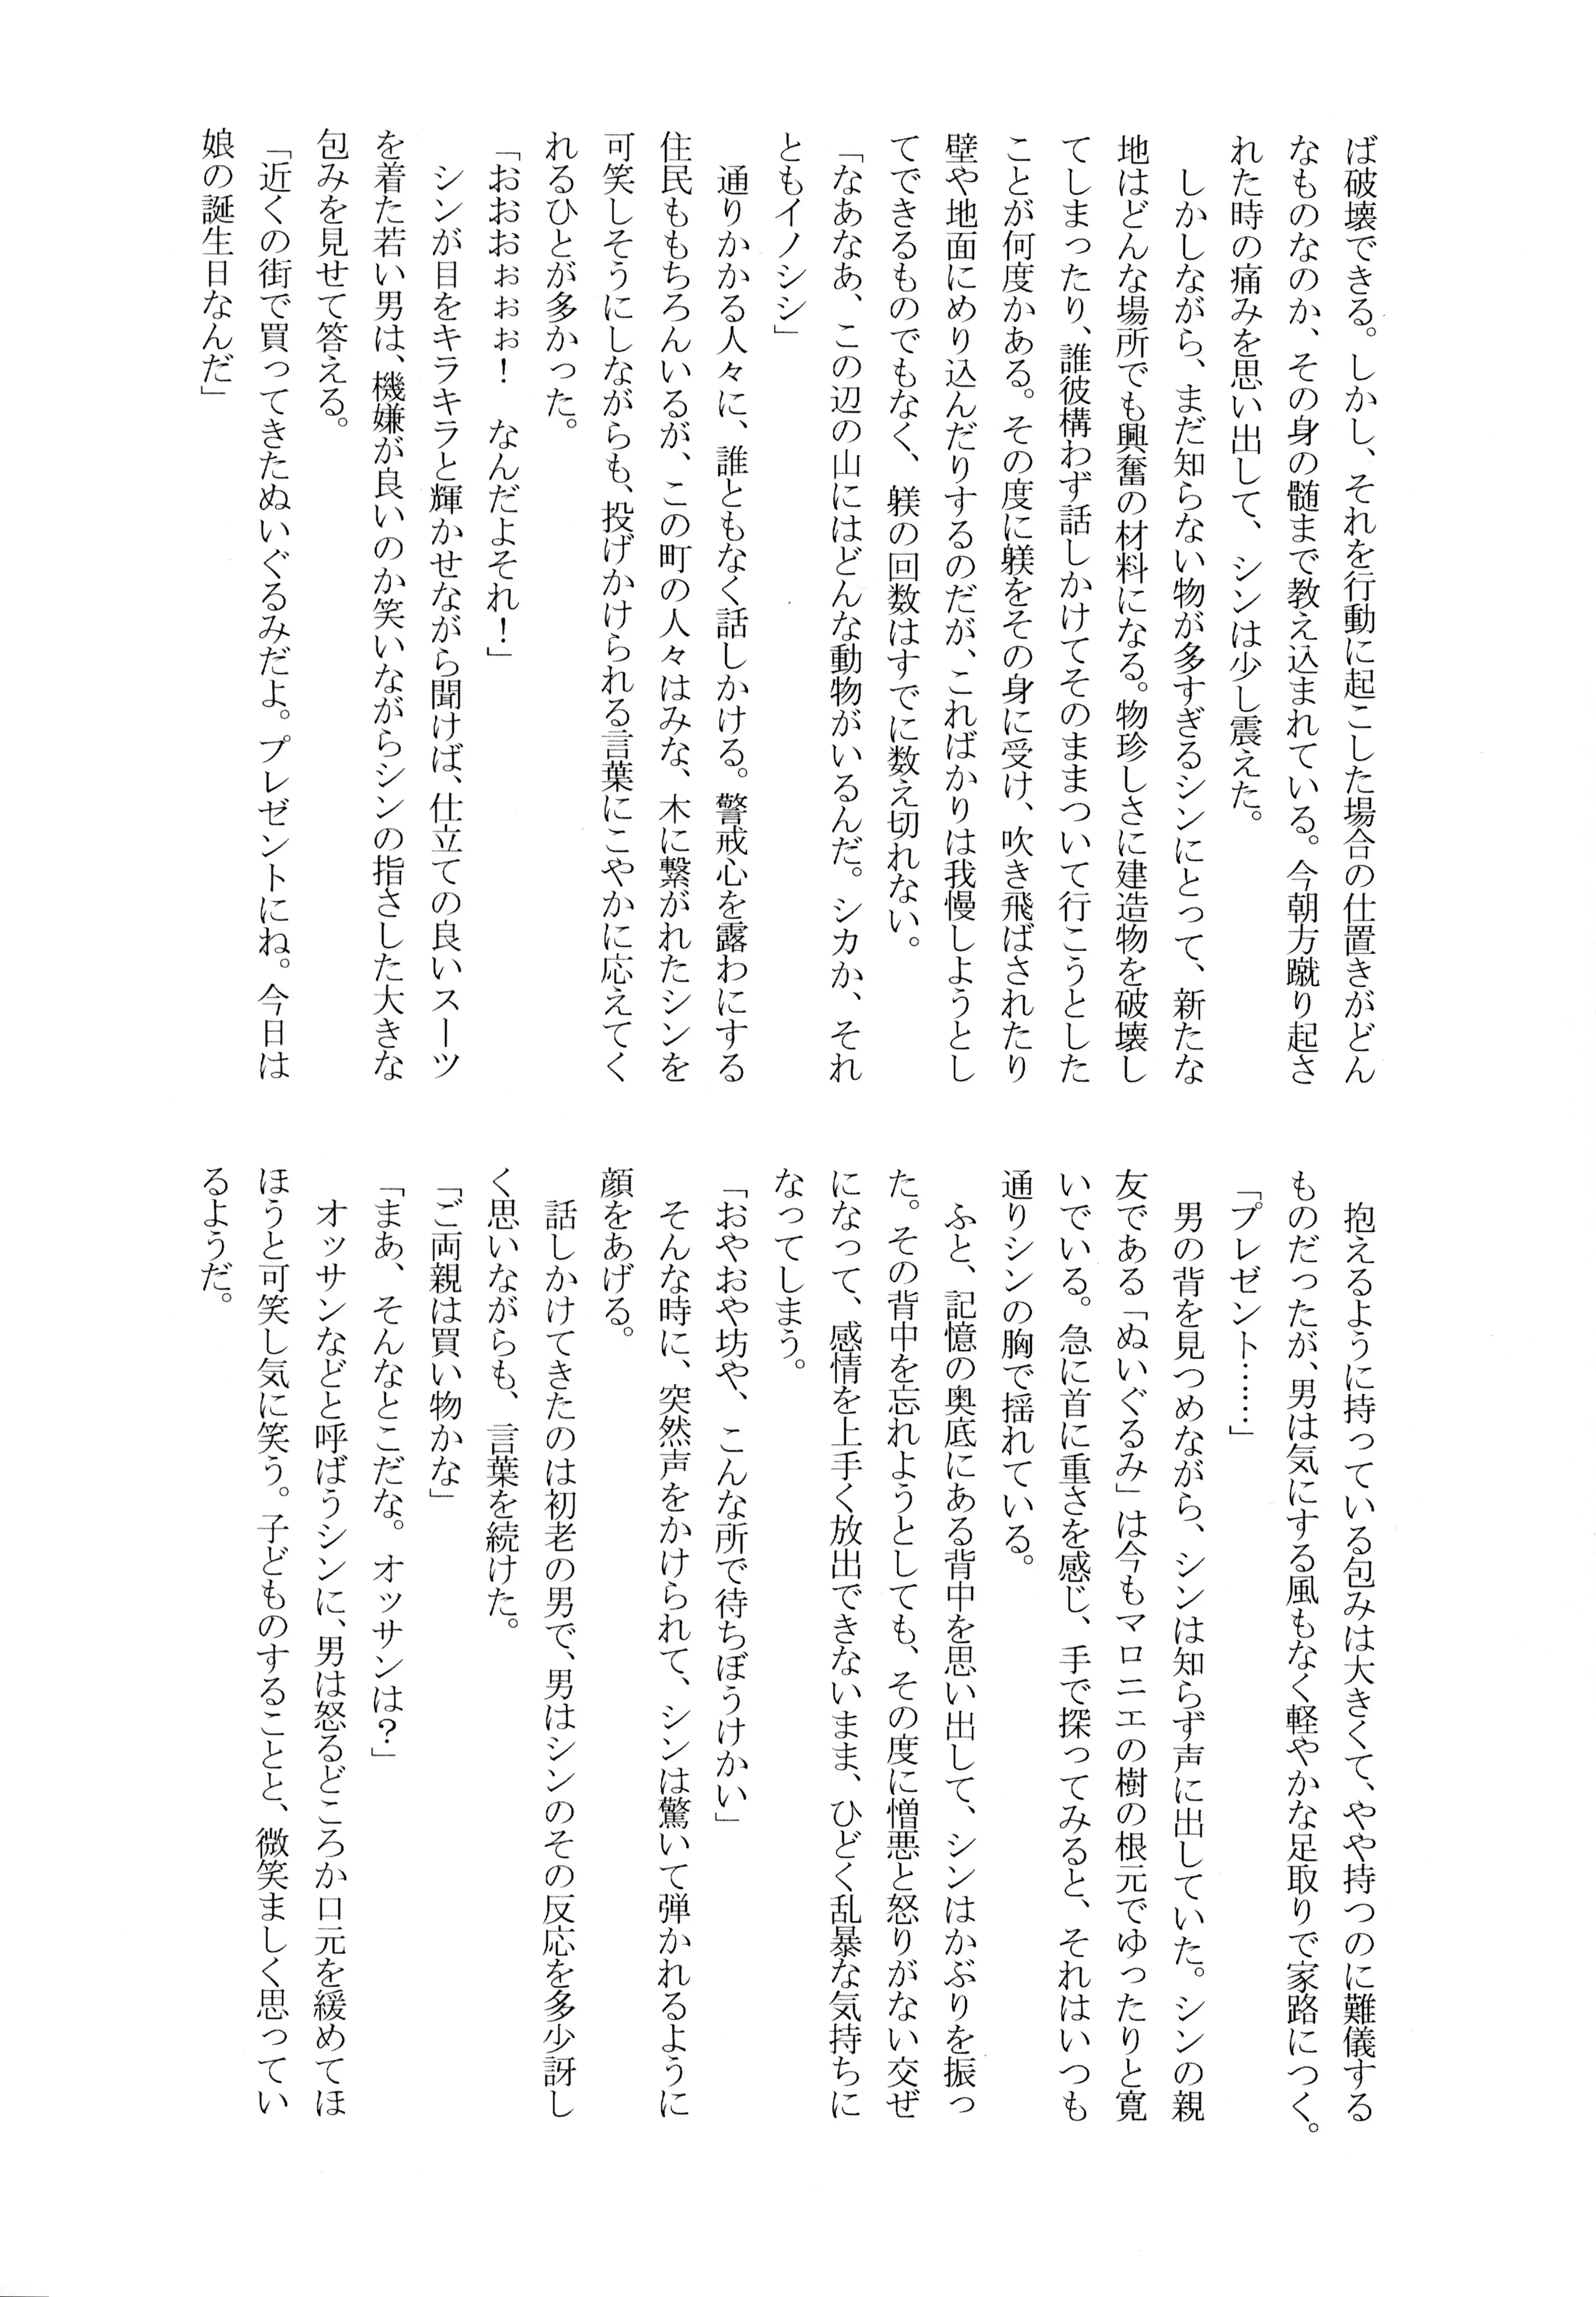 ば破壊できる。しかし、それを行動に起こした場合の仕置きがどん
なものなのか、その身の髄まで教え込まれている。今朝方蹴り起さ
れた時の痛みを思い出して、シンは少し震えた。
　しかしながら、まだ知らない物が多すぎるシンにとって、新たな
地はどんな場所でも興奮の材料になる。物珍しさに建造物を破壊し
てしまったり、誰彼構わず話しかけてそのままついて行こうとした
ことが何度かある。その度に躾をその身に受け、吹き飛ばされたり
壁や地面にめり込んだりするのだが、こればかりは我慢しようとし
てできるものでもなく、躾の回数はすでに数え切れない。
「なあなあ、この辺の山にはどんな動物がいるんだ。シカか、それ
ともイノシシ」
　通りかかる人々に、誰ともなく話しかける。警戒心を露わにする
住民ももちろんいるが、この町の人々はみな、木に繋がれたシンを
可笑しそうにしながらも、投げかけられる言葉にこやかに応えてく
れるひとが多かった。
「おおおぉぉぉ！　なんだよそれ！」
　シンが目をキラキラと輝かせながら聞けば、仕立ての良いスーツ
を着た若い男は、機嫌が良いのか笑いながらシンの指さした大きな
包みを見せて答える。
「近くの街で買ってきたぬいぐるみだよ。プレゼントにね。今日は
娘の誕生日なんだ」
　抱えるように持っている包みは大きくて、やや持つのに難儀する
ものだったが、男は気にする風もなく軽やかな足取りで家路につく。
「プレゼント……」
　男の背を見つめながら、シンは知らず声に出していた。シンの親
友である「ぬいぐるみ」は今もマロニエの樹の根元でゆったりと寛
いでいる。急に首に重さを感じ、手で探ってみると、それはいつも
通りシンの胸で揺れている。
　ふと、記憶の奥底にある背中を思い出して、シンはかぶりを振っ
た。その背中を忘れようとしても、その度に憎悪と怒りがない交ぜ
になって、感情を上手く放出できないまま、ひどく乱暴な気持ちに
なってしまう。
「おやおや坊や、こんな所で待ちぼうけかい」
　そんな時に、突然声をかけられて、シンは驚いて弾かれるように
顔をあげる。
　話しかけてきたのは初老の男で、男はシンのその反応を多少訝し
く思いながらも、言葉を続けた。
「ご両親は買い物かな」
「まあ、そんなとこだな。オッサンは？」
　オッサンなどと呼ばうシンに、男は怒るどころか口元を緩めてほ
ほうと可笑し気に笑う。子どものすることと、微笑ましく思ってい
るようだ。